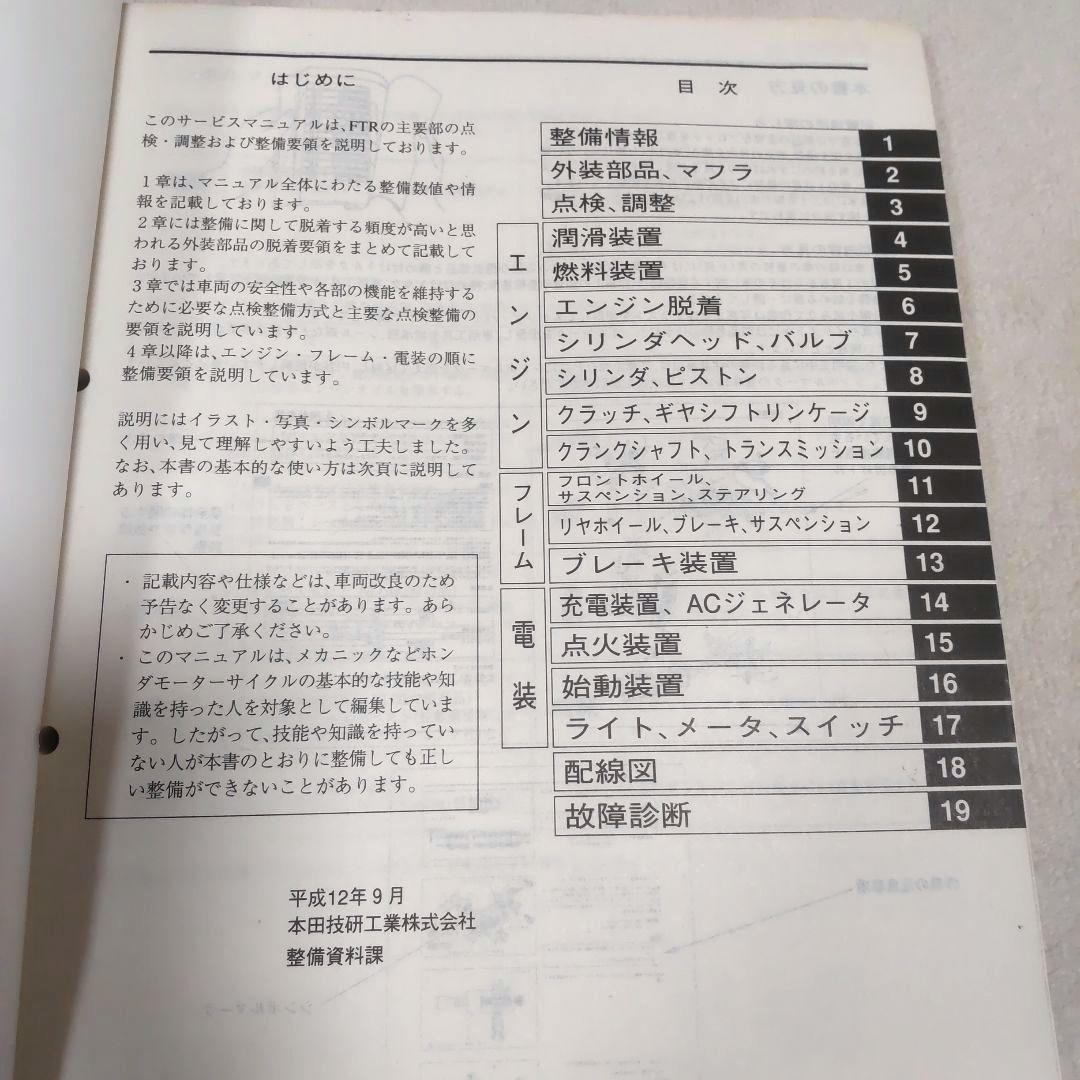 はじめに
このサービスマニュアルは、FTRの主要部の点
検・調整および整備要領を説明しております。
1章は、マニュアル全体にわたる整備数値や情
報を記載しております。
2章には整備に関して脱着する頻度が高いと思
われる外装部品の脱着要領をまとめて記載して
おります。
3章では車両の安全性や各部の機能を維持する
ために必要な点検整備方式と主要な点検整備の
要領を説明しています。
4章以降は、エンジン・フレーム・電装の順に
整備要領を説明しています。
説明にはイラスト・写真・シンボルマークを多
く用い、見て理解しやすいよう工夫しました。
なお、本書の基本的な使い方は次頁に説明して
あります。
・ 記載内容や仕様などは、車両改良のため
予告なく変更することがあります。あら
かじめご了承ください。
・ このマニュアルは、メカニックなどホン
ダモーターサイクルの基本的な技能や知
識を持った人を対象として編集していま
す。したがって、技能や知識を持ってい
ない人が本書のとおりに整備しても正し
い整備ができないことがあります。
平成12年9月
本田技研工業株式会社
整備資料課
目 次
整備情報 1
外装部品、マフラ 2
点検、調整 3
エンジン
潤滑装置 4
燃料装置 5
エンジン脱着 6
シリンダヘッド、バルブ 7
シリンダ、ピストン 8
クラッチ、ギヤシフトリンケージ 9
クランクシャフト、トランスミッション 10
フレーム
フロントホイール、
サスペンション、ステアリング 11
リヤホイール、ブレーキ、サスペンション 12
ブレーキ装置 13
電装
充電装置、ACジェネレータ 14
点火装置 15
始動装置 16
ライト、メータ、スイッチ 17
配線図 18
故障診断 19